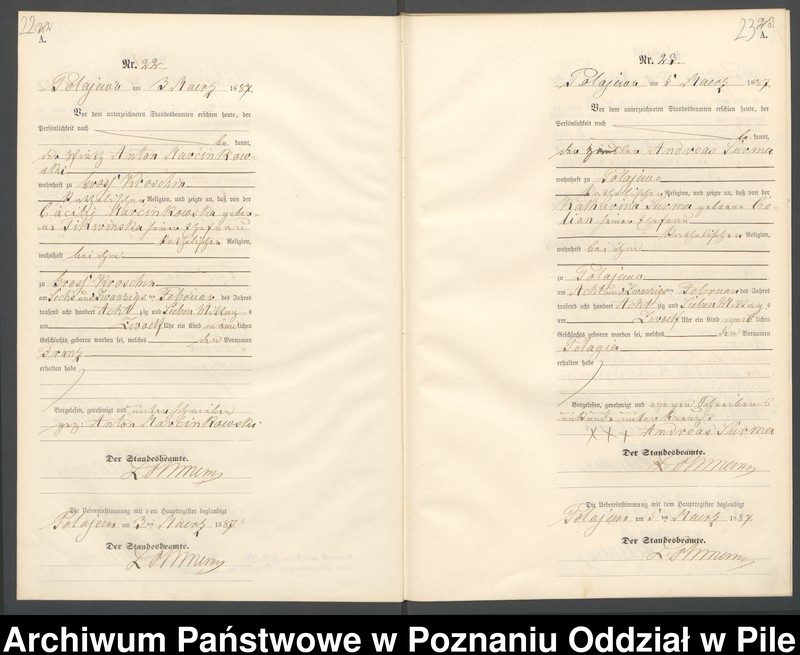 22
A.
Nr. 22
Polajewo am 3 Maerz 1887.
Vor dem unterzeichneten Standesbeamten erschien heute, der
Persönlichkeit nach
be kannt,
der Anton Marcinkow-
ski
wohnhaft zu Gross Kroschin
katholischer Religion, und zeigte an, daß von der
Cäcilie Marcinkowska gebor-
ne Sikwinska seiner Ehefrau
katholischer Religion,
wohnhaft bei ihm
zu Gross Kroschin
am Sechs und Zwanzigs ten Februar des Jahres
tausend acht hundert Acht zig und Sieben Mittag s
um Zwoelf Uhr ein Kind männ lichen
Geschlechts geboren worden sei, welches den Vornamen
Franz
erhalten habe
Vorgelesen, genehmigt und unterschrieben
gez. Anton Marcinkowski
Der Standesbeamte.
Die Uebereinstimmung mit dem Hauptregister beglaubigt
Polajewo am 3 ten Maerz 1887
Der Standesbeamte.
23
A.
Nr. 23
Polajewo am 5 Maerz 1887.
Vor dem unterzeichneten Standesbeamten erschien heute, der
Persönlichkeit nach
be kannt,
der Andreas Surma
wohnhaft zu Polajewo
katholischer Religion, und zeigte an, daß von der
Katharina Surma geborne
seiner Ehefrau
katholischer Religion,
wohnhaft bei ihm
zu Polajewo
am Acht und Zwanzigs ten Februar des Jahres
tausend acht hundert Acht zig und Sieben Mittag s
um Zwoelf Uhr ein Kind lichen
Geschlechts geboren worden sei, welches den Vornamen
Pelagia
erhalten habe
Vorgelesen, genehmigt und wegen Schreibens
unkunde unterkreuzt
XXX Andreas Surma
Der Standesbeamte.
Die Uebereinstimmung mit dem Hauptregister beglaubigt
Polajewo am 5 ten Maerz 1887.
Der Standesbeamte.
Archiwum Państwowe w Poznaniu Oddział w Pile